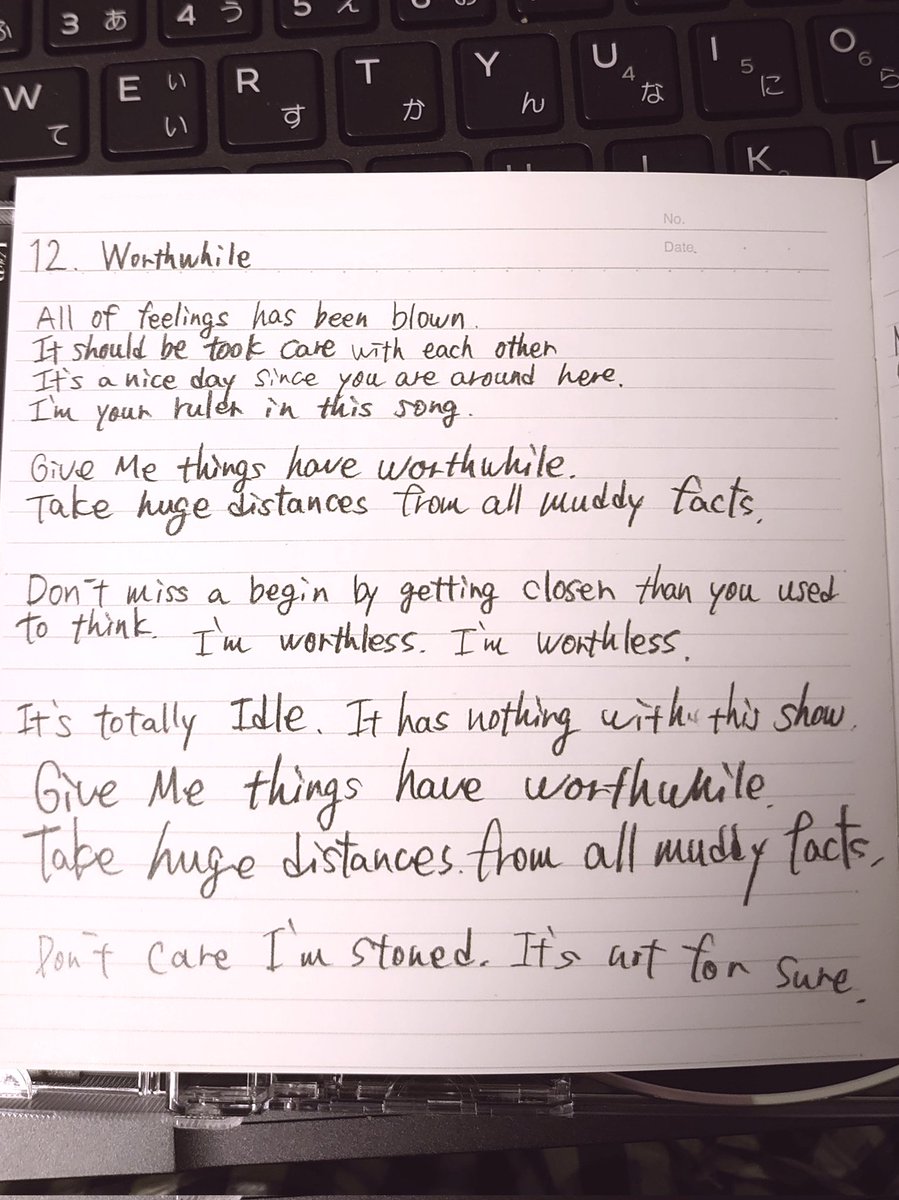 3 あ 4 う 5 え
W て E い い R す T か Y ん U 4 な I 5 に O 6 ら
K L
No.
Date
12. Worthwhile
All of feelings has been blown.
It should be took care with each other
It's a nice day since you are around here.
I'm your ruler in this song.
Give Me things have worthwhile.
Take huge distances from all muddy facts.
Don't miss a begin by getting closer than you used
to think. I'm worthless. I'm worthless.
It's totally Idle. It has nothing with this show.
Give Me things have worthwhile.
Take huge distances. from all muddy facts.
Don't care I'm stoned. It's art for sure.